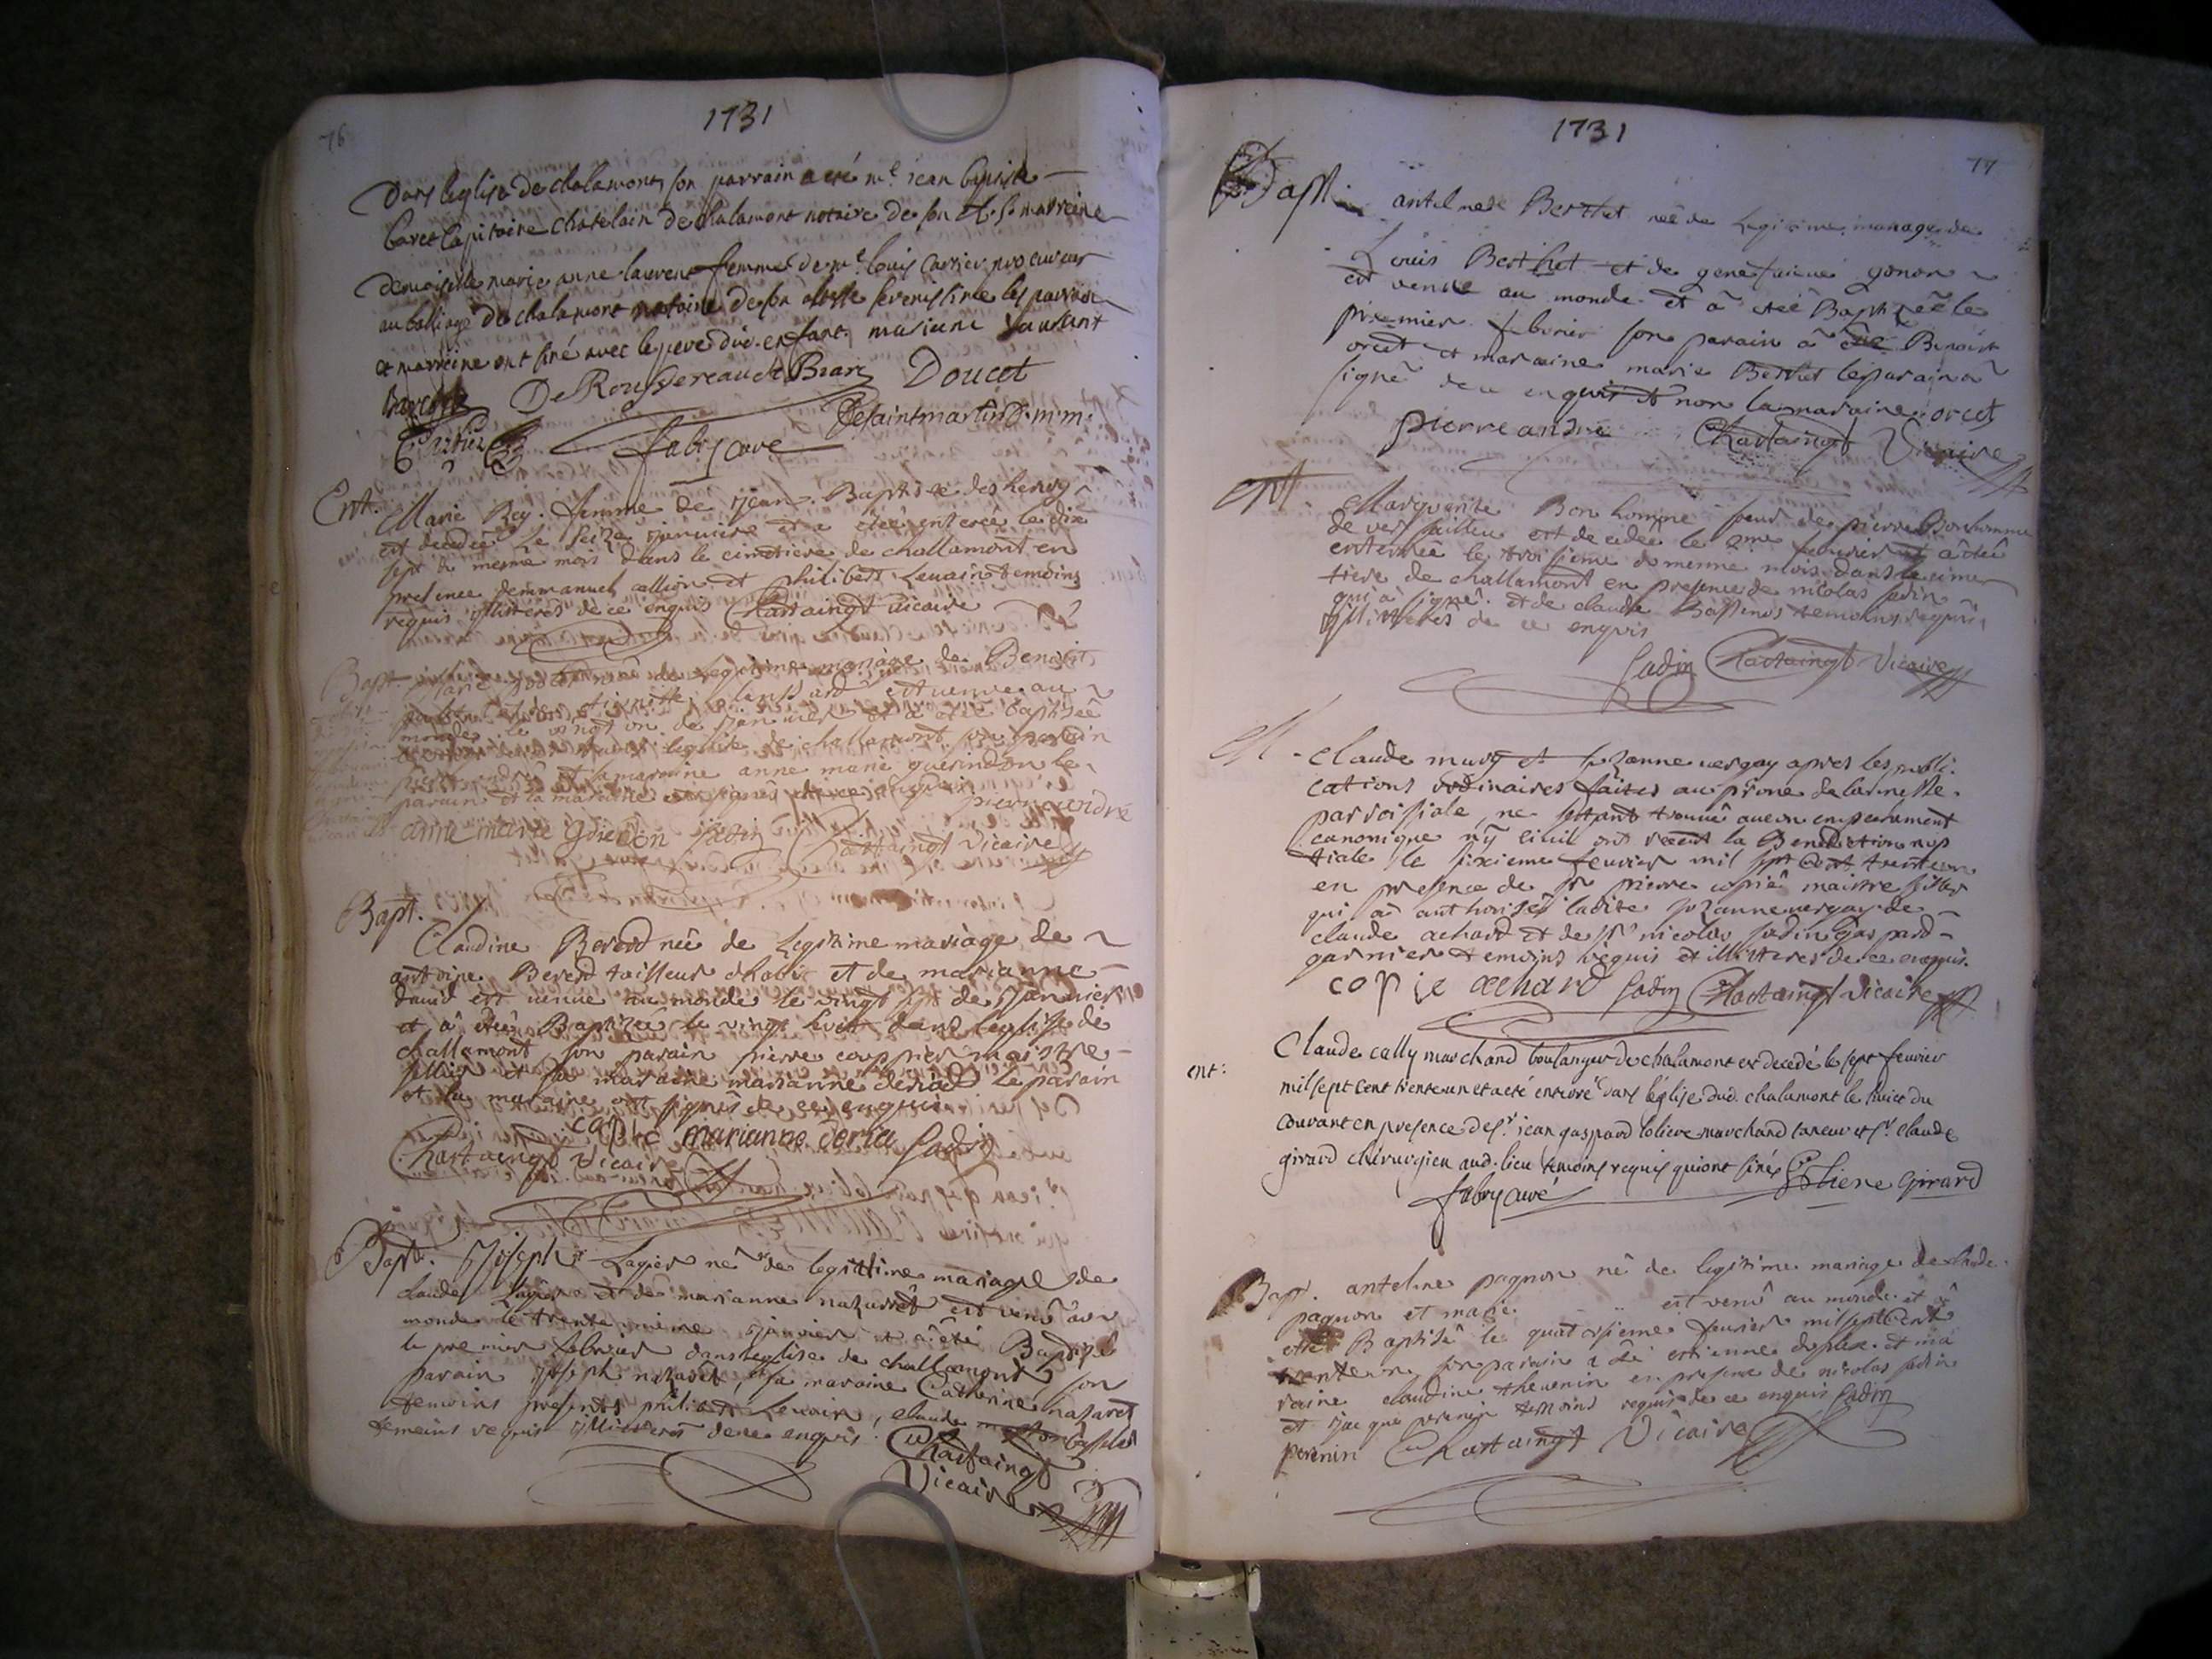 76
1731
Dans leglise de chalamont son parrain a été mᵉ jean baptiste
baret Capitaine chatelain de chalamont notaire de son A. S. marreine
demoiselle marie anne laurent femme de mᵉ louis Carrier procureur
au balliage de chalamont notaire de son altesse serenissime les parrain
et marreine ont siné avec le pere dud. enfant. mariane laurant
DeRoussereau de Biars Doucet
Desaintmartin D. m. m.
fabry curé
Ent. Marie Rey femme de jean Baptiste deshenry
est decedeé Le seize janvire et a eteé enterreé le dix
sept du mesme mois dans le cimetiere de challamont en
presence demmanuel callion et philibert Leuain temoins
requis illitterés de ce enquis Chastaingt vicaire
Bapt. Marie née de Legitime mariage de Benoist
est venue au
monde le vingt un de janvier et a eteé baptiseé
leglise de challamont son parain
pierre andré et la maraine anne marie guerindon le
parain et la maraine
pierre andré
anne marie Sadin Chastaingt Vicaire
Bapt.
Claudine Bererd neé de Legitime mariage de
antoine Bererd tailleur dhabit et de marianne
dauid est venue au monde le vingt sept de janvier
et a eteé Baptizeé le vingt huit dans leglise de
challamont son parain pierre couppier maistre
sellier et sa maraine marianne deriad Le parain
et la maraine ont signés de ce enquis
copie marianne deria Sadin
Chastaingt Vicaire
Bapt. Joseph Lagier né de legittime mariage de
claude Lagier et de marianne nazarret est venu au
monde le trente unieme janvier et a été Baptizé
le premier febrier dans leglise de challamont son
parain joseph nazaret, sa maraine Catherine nazaret
temoins presents philibert Leuain, claude
temoins requis illitterés de ce enquis
Chastaingt
Vicaire
1731
77
Bapt. antelmete Berthet neé de Legitime mariage de
Louis Berthet et de genefueiue gonon
est venue au monde et a eteé Baptizeé le
premier febrier son parain a été Benoist
orcet et maraine marie Berthet le parain a
signé de ce enquis et non la maraine. orcet
pierre andré Chastaingt Vicaire
Marguerite Bon homme feue de pierre Bonhomme
de versailleu est decedeé le 2me feurier et a eteé
enterreé le troisieme du mesme mois dans le cime
tiere de challamont en presence de nicolas sadin
qui a signé et de claude temoins requis
illitterés de ce enquis
Sadin Chastaingt Vicaire
M. Claude mury et suzanne uergay apres les publi
cations ordinaires faites au prone de la messe
parroissiale, ne sestant trouué aucun empechement
canonique ny ciuil ont receut la Benediction nup
tiale le sixieme feurier mil sept Cent trente un
en presence de sr pierre copié maistre sellier
qui a authorisé ladite suzanne uergay de
claude achard et de sr nicolas sadin gaspard
garnier temoins requis et illitterés de ce enquis.
copie achard Sadin Chastaingt Vicaire
ent: Claude cally marchand boulanger de chalamont est decedé le sept feurier
mil sept cent trente un et a eté enterré dans l'église dud. chalamont le huict du
courant en presence de sr jean gaspard loliere marchand taneur et sr claude
girard chirurgien aud. lieu temoins requis qui ont sinés
fabry curé Loliere Girard
Bapt. antelme pagnon né de legitime mariage de claude
pagnon et marie est venu au monde et a
eteé Baptisé le quatorsieme feurier mil sept Cent
trente un son parain a été estienne duplex et ma
raine claudine theuenin en presence de nicolas sadin
et jacque perenin temoins requis de ce enquis Sadin
perenin Chastaingt Vicaire